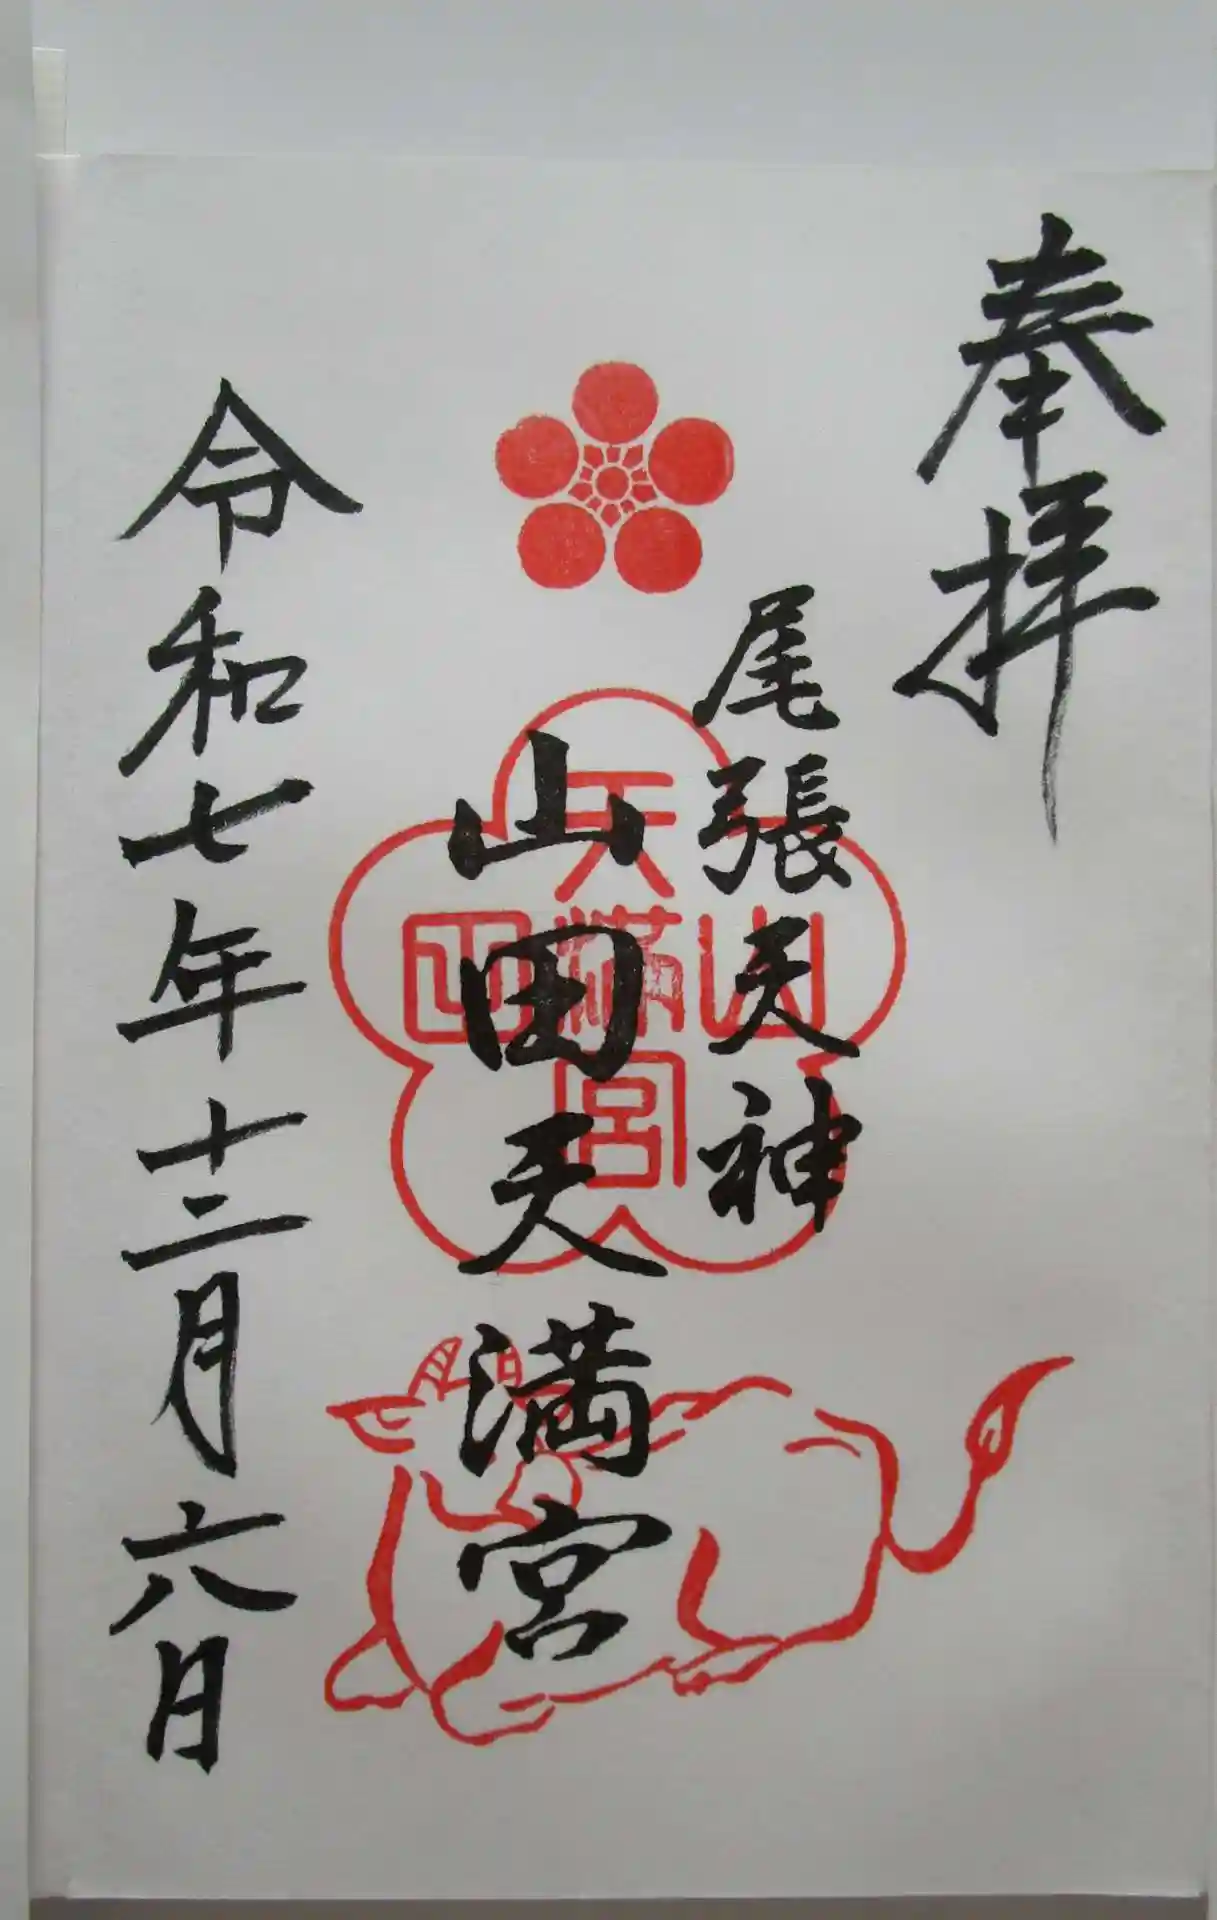 奉拝
尾張天神
山田天満宮
天
山満田
宮
令和七年十二月六日